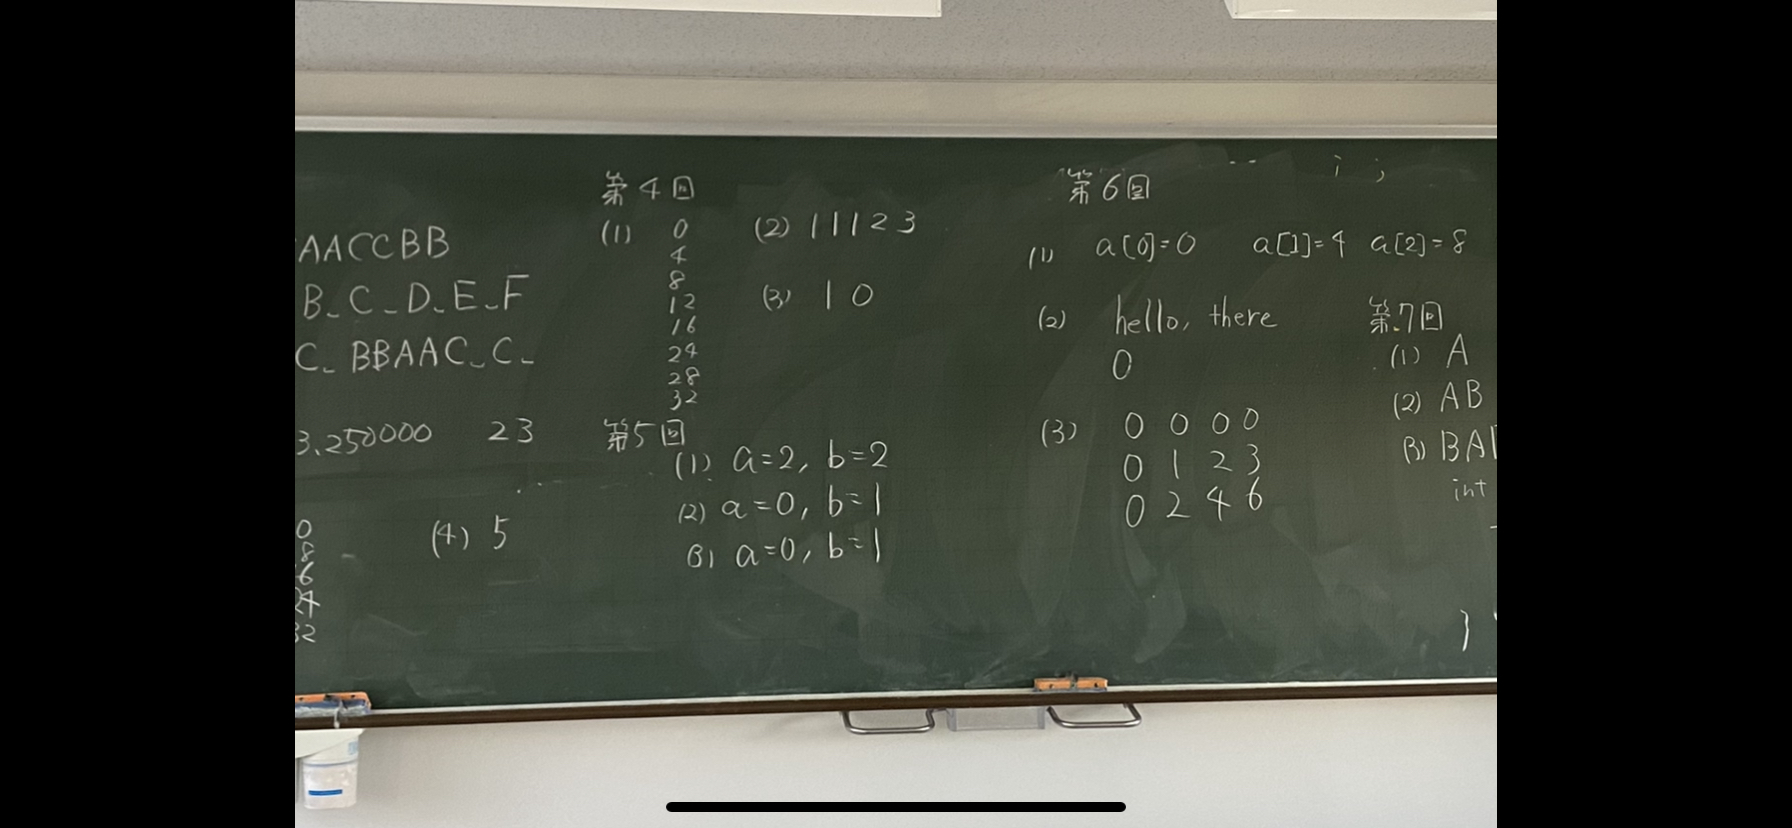 AACCBB
B_C_D_E_F
C_BBAAC_C_
3.250000 23
0
8
6
24
32
(4) 5
第4回
(1) 0
4
8
12
16
24
28
32
(2) 11123
(3) 10
第5回
(1) a=2, b=2
(2) a=0, b=1
(3) a=0, b=1
第6回
i ;
(1) a[0]=0 a[1]=4 a[2]=8
(2) hello, there
0
(3) 0 0 0 0
0 1 2 3
0 2 4 6
第7回
(1) A
(2) AB
(3) BA
int
}